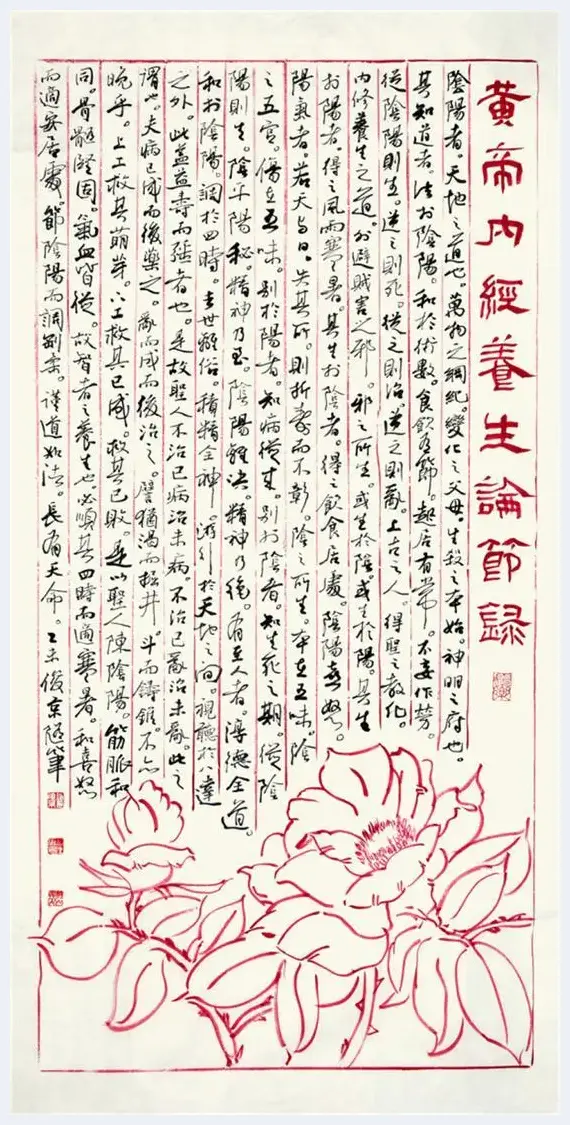 黃帝內經養生論節錄
陰陽者。天地之道也。萬物之綱紀。變化之父母。生殺之本始。神明之府也。
其知道者。法於陰陽。和於術數。食飲有節。起居有常。不妄作勞。
從陰陽則生。逆之則死。從之則治。逆之則亂。上古之人。得聖之教化。
內修養生之道。外避賊害之邪。邪之所生。或生於陰。或生於陽。其生
於陽者。得之風雨寒暑。其生於陰者。得之飲食居處。陰陽喜怒。
陽氣者。若天與日。失其所。則折壽而不彰。陰之所生。本在五味。陰
之五官。傷在五味。別於陽者。知病從來。別於陰者。知生死之期。從陰
陽則生。陰平陽秘。精神乃至。陰陽離決。精神乃絕。有至人者。淳德全道。
和於陰陽。調於四時。去世離俗。積精全神。游行於天地之間。視聽於八達
之外。此蓋益壽而強者也。是故聖人不治已病治未病。不治已亂治未亂。此之
謂也。夫病已成而後藥之。亂而成而後治之。譬猶渴而掘井。斗而鑄錐。不亦
晚乎。上工救其萌芽。下工救其已成。救其已敗。是以聖人陳陰陽。筋脈和
同。骨髓堅固。氣血皆從。故智者之養生也。必順其四時而適寒暑。和喜怒
而適安居處。節陰陽而調剛柔。謹道如法。長有天命。乙未俊京隨筆